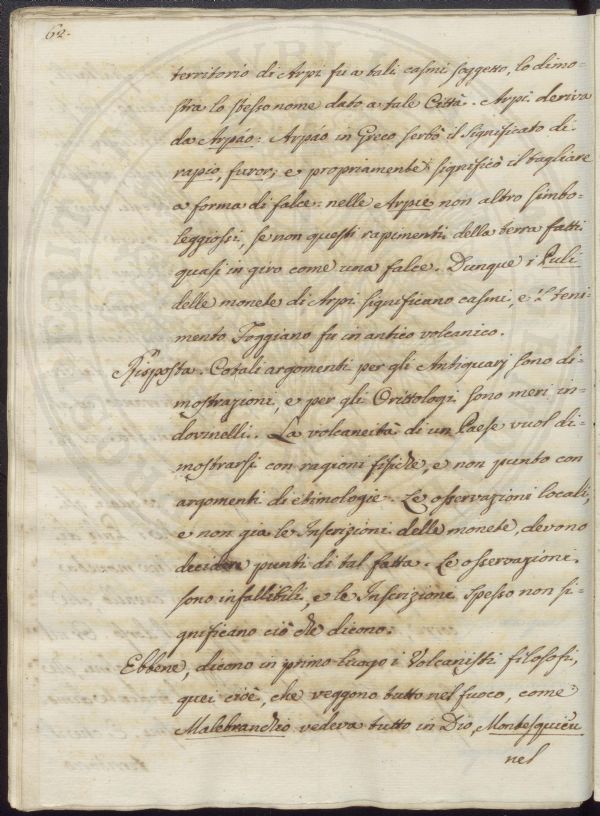 62.
territorio di Arpi fu a tali casmi soggetto, lo dimo-
stra lo stesso nome dato a tale Città. Arpi deriva
da Arpáo: Arpáo in Greco serbò il significato di
rapio, furor; e propriamente significò il tagliare
a forma di falce: nelle Arpie non altro simbo-
leggiossi, se non questi rapimenti della terra fatti
quasi in giro come una falce. Dunque i Puli
delle monete di Arpi significano casmi, e 'l teni-
mento Foggiano fu in antico volcanico.
Risposta. Cotali argomenti per gli Antiquarj sono di-
mostrazioni, e per gli Orittologi sono meri in-
dovinelli. La volcaneità di un Paese vuol di-
mostrarsi con ragioni fisiche, e non punto con
argomenti di etimologie. Le osservazioni locali,
e non già le Inscrizioni delle monete, devono
decidere punti di tal fatta. Le osservazioni
sono infallibili, e le Inscrizioni spesso non si-
gnificano ciò che dicono.
Ebbene, dicono in primo luogo i Volcanisti filosofi,
quei cioè, che veggono tutto nel fuoco, come
Malebranchio vedeva tutto in Dio, Montesquieu
nel